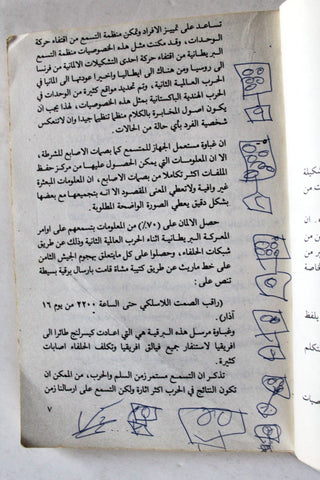 تساعد على تمييز الافراد وتمكن منظمة التسمع من اقتفاء حركة
الوحدات، وقد مكنت مثل هذه الخصوصيات منظمة التسمع
البريطانية من اقتفاء حركة احدى التشكيلات الالمانية من فرنسا
الى روسيا ومن هناك الى ايطاليا واخيرا عودتها الى المانيا في
الحرب العالمية الثانية، وتم تحديد مواقع كثيرة من الوحدات في
الحرب الهندية الباكستانية بمثل هذه الخصوصيات، لهذا يجب ان
يكون اصول المخابرة بالكلام منظما تنظيما جيدا وان لاتنعكس
شخصية الفرد بأية حال من الحالات.
ان غباوة مستعمل الجهاز للمتسمع كما بصمات الاصابع للشرطة،
الا ان المعلومات التي يمكن الحصول عليها من مركز حفظ
الملفات اكثر تكاملا من بصمات الاصابع، ان المعلومات المبعثرة
غير وافية ولاتعطي المعنى المقصود الا انه بتجميعها مع بعضها
بشكل دقيق يعطي الصورة الواضحة المطلوبة.
حصل الالمان على (٧٠٪) من المعلومات بتسمعهم على اوامر
المعركة البريطانية اثناء الحرب العالمية الثانية وذلك عن طريق
شبكات الحلفاء، وحصلوا على كل مايتعلق بهجوم الجيش الثامن
على خط ماريث عن طريق كتيبة مشاة قامت بارسال برقية بسيطة
تنص على:
(راقب الصمت اللاسلكي حتى الساعة ٢٢٠٠ من يوم ١٦
آذار)
وغباوة مرسل هذه البرقية هي التي اعادت كيسرلنج طائرا الى
افريقيا لاستنفار جميع فيالق افريقيا وتكلف الحلفاء اصابات
كثيرة.
تذكر ان التسمع مستمر زمن السلم والحرب، من الممكن ان
تكون النتائج في الحرب اكثر اثارة ولكن التسمع على ارسالنا زمن
٧